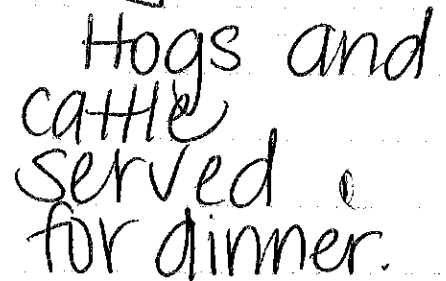 Hogs and
cattle
served
for dinner.